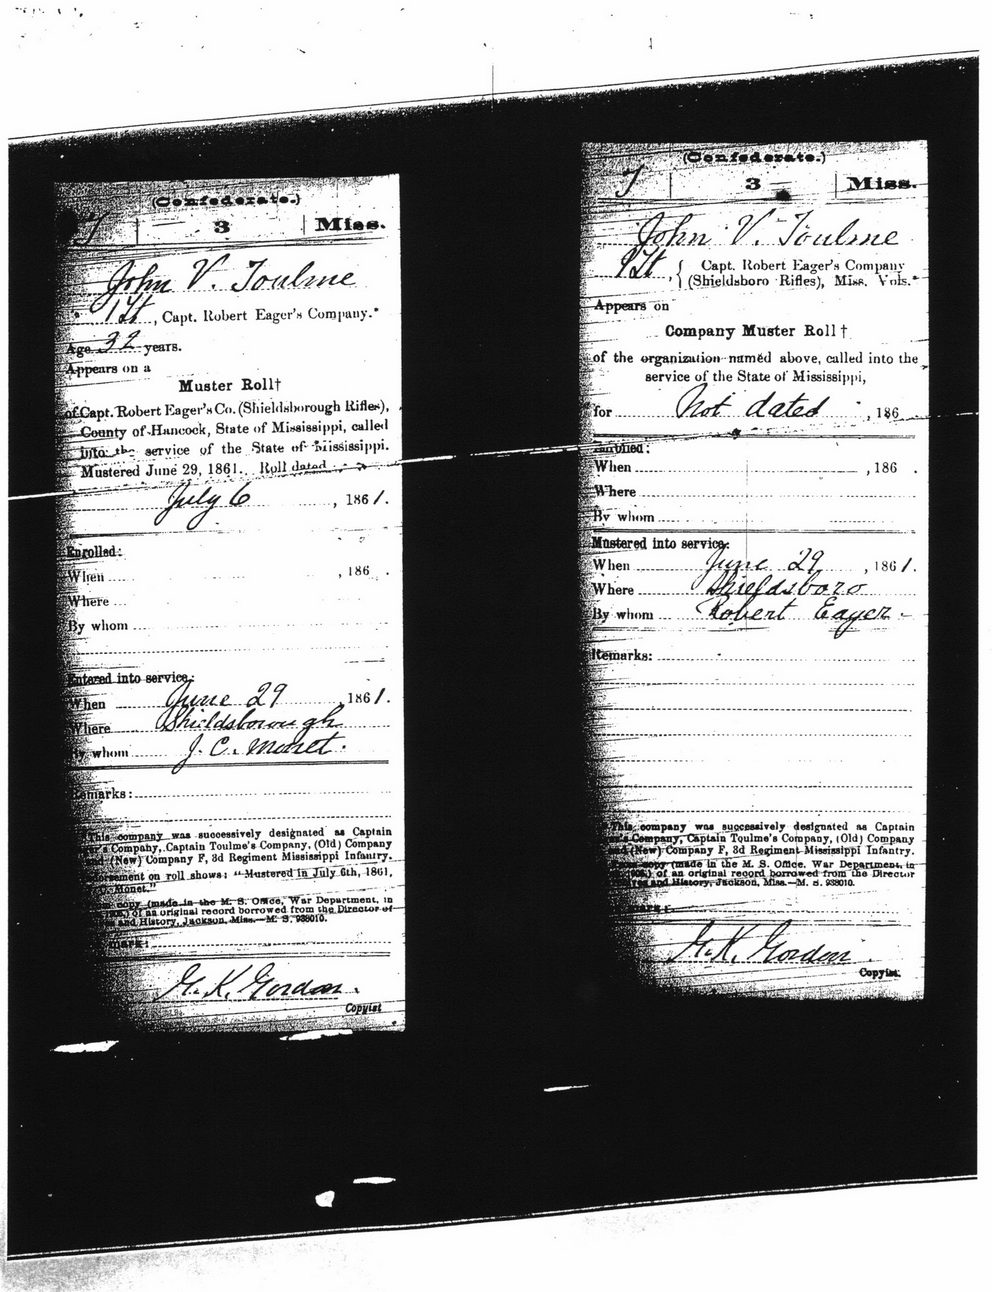 (Confederate.)
T | 3 | Miss.
John V. Toulme
1 Lt, Capt. Robert Eager's Company.*
Age 32 years.
Appears on a
Muster Roll†
of Capt. Robert Eager's Co. (Shieldsborough Rifles),
County of Hancock, State of Mississippi, called
into the service of the State of Mississippi.
Mustered June 29, 1861. Roll dated
July 6, 1861.
Enrolled:
When , 186 .
Where
By whom
Entered into service:
When June 29, 1861.
Where Shieldsborough
By whom J. C. Monet.
Remarks:
*This company was successively designated as Captain
Company, Captain Toulme's Company, (Old) Company
and (New) Company F, 3d Regiment Mississippi Infantry.
on roll shows: "Mustered in July 6th, 1861,
Monet."
copy (made in the M. S. Office, War Department, in
of an original record borrowed from the Director of
and History, Jackson, Miss.—M. S. 938010.
G. K. Gordon.
Copyist
(Confederate.)
T | 3 | Miss.
John V. Toulme
1 Lt, { Capt. Robert Eager's Company
(Shieldsboro Rifles), Miss. Vols.*
Appears on
Company Muster Roll†
of the organization named above, called into the
service of the State of Mississippi,
for Not dated , 186
Enrolled:
When , 186 .
Where
By whom
Mustered into service:
When June 29, 1861.
Where Shieldsboro
By whom Robert Eager
Remarks:
*This company was successively designated as Captain
Company, Captain Toulme's Company, (Old) Company
and (New) Company F, 3d Regiment Mississippi Infantry.
copy (made in the M. S. Office, War Department, in
of an original record borrowed from the Director
and History, Jackson, Miss.—M. S. 938010.
G. K. Gordon.
Copyist.